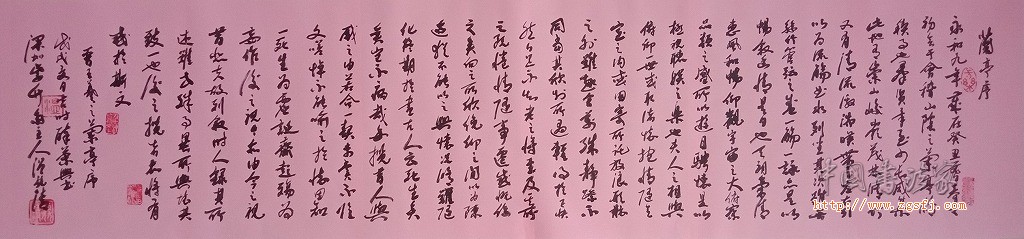 蘭亭序
永和九年歲在癸丑暮春之
初會于會稽山陰之蘭亭修
禊事也羣賢畢至少長咸集
此地有崇山峻嶺茂林修竹
又有清流激湍映帶左右引
以為流觴曲水列坐其次雖無
絲竹管弦之盛一觴一詠亦足以
暢敘幽情是日也天朗氣清
惠風和暢仰觀宇宙之大俯察
品類之盛所以遊目騁懷足以
極視聽娛之樂也夫人之相與
俯仰一世或取諸懷抱悟言一
室之內或因寄所託放浪形骸
之外雖趣舍萬殊靜躁不
同當其欣於所遇暫得於己快
然自足不知老之將至及其所
之既倦情隨事遷感慨係
之矣向之所欣俛仰之間以為陳
迹猶不能不以之興懷況修短隨
化終期於盡古人云死生亦大
矣豈不痛哉每攬昔人興
感之由若合一契未嘗不臨
文嗟悼不能喻之於懷固知
一死生為虛誕齊彭殤為
妄作後之視今亦由今之視
昔悲夫故列敘時人錄其所
述雖世殊事異所以興懷其
致一也後之攬者亦將有
感於斯文
晉王羲之蘭亭序
中国书法家
http://www.zgsfj.com